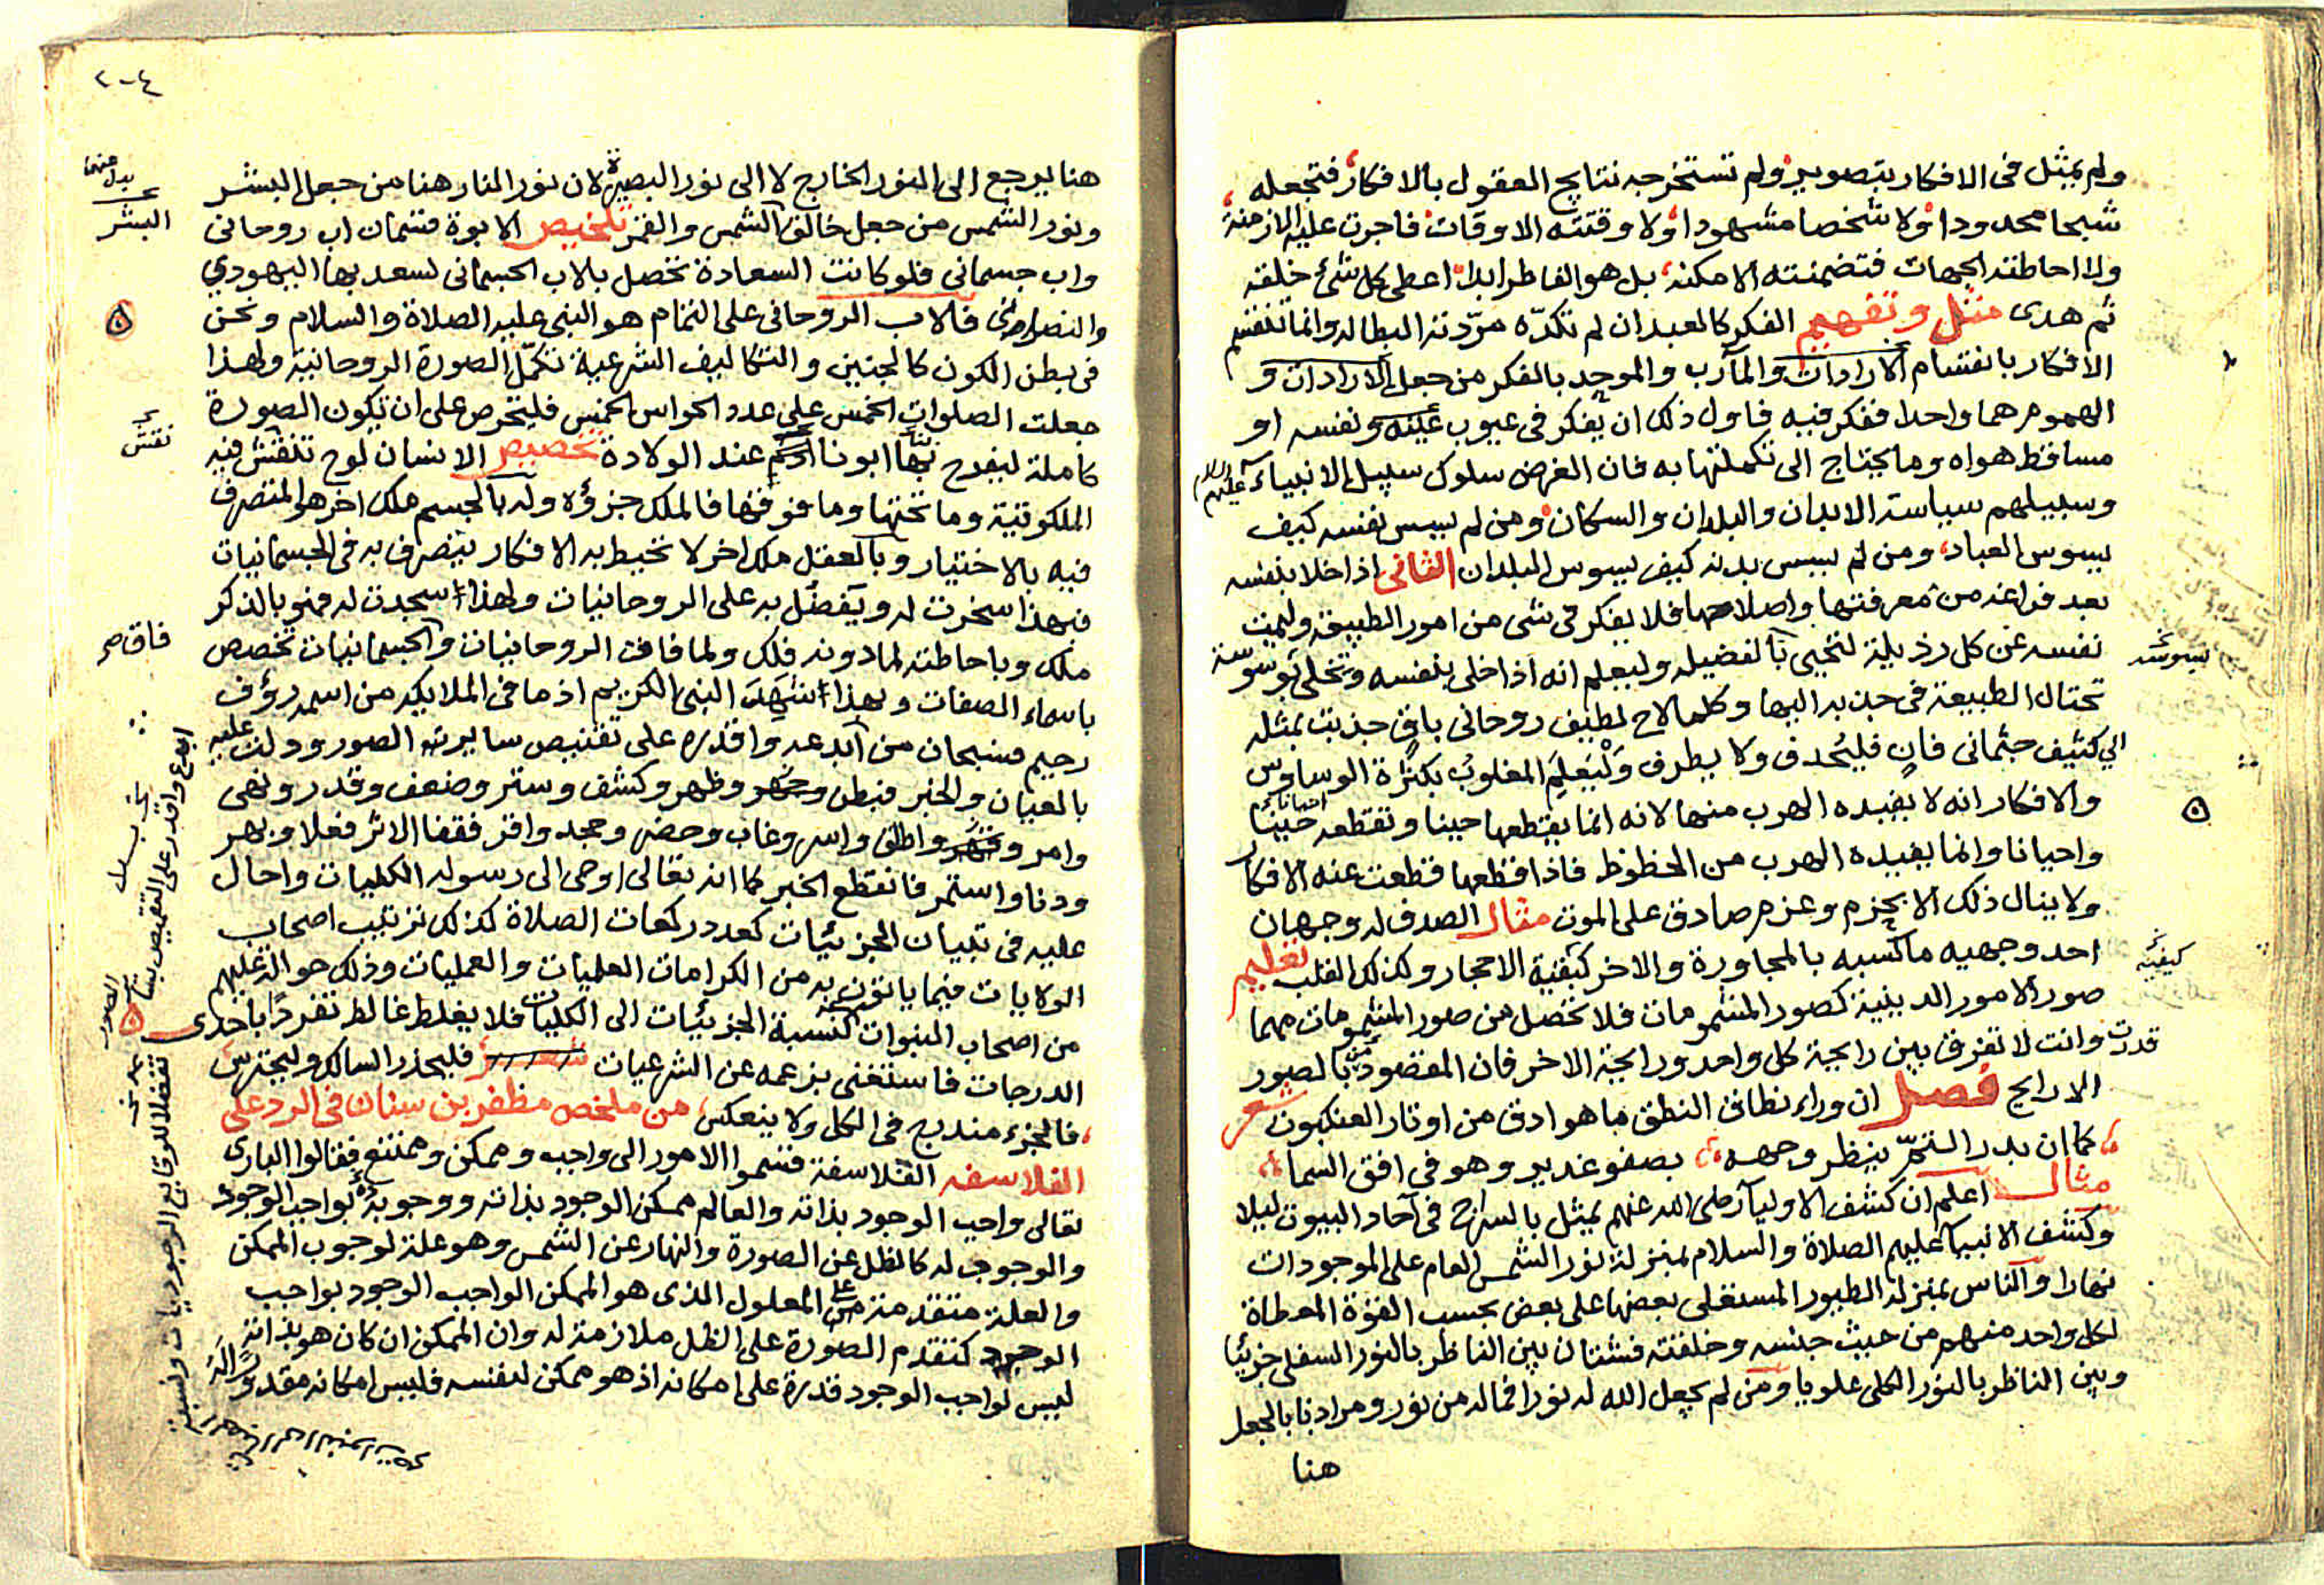 ولم يمثل في الافكار بتصوير ولم تستخرجه نتايج العقول بالافكار فتجعله
شبحا محدودا ولا شخصا مشهودا ولا وقتته الاوقات فاجرت عليه الازمنة
ولا احاطته الجهات فتضمنته الامكنة بل هو الفاطر ابدا اعطى كل شئ خلقه
ثم هدى مثل وتفهيم الفكر كالعبد ان لم تكدّه مرّدته البطاله وانما تنقسم
الافكار بانقسام الارادات والمآرب والموحد بالفكر من جعل الارادات و
الهموم هما واحدا ففكر فيه فاول ذلك ان يفكر في عيوب عينه ونفسه او
مساقط هواه وما يحتاج الى تكملتها به فان الغرض سلوك سبيل الانبياء عليهم السلام
وسبيلهم سياسة الابدان والبلدان والسكان ومن لم يسس نفسه كيف
يسوس العباد ومن لم يسس بدنه كيف يسوس البلدان الثاني اذا خلا بنفسه
بعد فراغه من معرفتها واصلاحها فلا يفكر في شى من امور الطبيعة وليمت
نفسه عن كل رذيلة لتحيى بالفضيله وليعلم انه اذا خلى بنفسه وتخلى بوسوسة
تحتال الطبيعة في جذبه اليها وكلما لاح لطيف روحاني باق جذبت بمثله
الي كثيف جثماني فان فليحدق ولا يطرف وليعلم المغلوب بكثرة الوساوس
والافكار انه لا يفيده الهرب منها لانه انما يقتطعها حينا وتقتطعه حينا
واحيانا وانما يفيده الهرب من الحظوظ فاذا قطعها قطعت عنه الافكار
ولا ينال ذلك الا بحزم وعزم صادق على الموت مثال الصدف له وجهان
احد وجهيه ما كسبه بالمجاورة والاخر كبقية الاحجار وكذلك القلب تعليم
صور الامور الدينية كصور المشمومات فلا تحصل من صور المشمومات مهما
قدرت وانت لا تفرق بين رايحة كل واحد ورايحة الاخر فان المقصود بالصور
الارايح فصل ان وراء نطاق النطق ما هو ادق من اوتار العنكبوت شعر
كما ان بدر التمّ ينظر وجهه بصفو غدير وهو في افق السما
مثال اعلم ان كشف الاوليآ رضى الله عنهم يمثل بالسراج في آحاد البيوت ليلا
وكشف الانبيآ عليهم الصلاة والسلام بمنزلة نور الشمس العام على الموجودات
نهارا والناس بمنزلة الطيور المستعلى بعضها على بعض بحسب القوة المعطاة
لكل واحد منهم من حيث جنسه وخلقته فشتان بين الناظر بالنور السفلى جزئيا
وبين الناظر بالنور الكلى علويا ومن لم يجعل الله له نورا فما له من نور ومرادنا بالجعل
هنا
بسوسة
كيفية
٢٠٤
هنا يرجع الى النور الخارج لا الى نور البصيرة لان نور النار هنا من جعل البشر
ونور الشمس من جعل خالق الشمس والقمر تلخيص الابوة قسمان اب روحاني
واب جسماني فلو كانت السعادة تحصل بالاب الجسماني لسعد بها اليهودي
والنصراني فالاب الروحاني على التمام هو النبي عليه الصلاة والسلام ونحن
في بطن الكون كالجنين والتكاليف الشرعية تكمّل الصورة الروحانية ولهذا
جعلت الصلوات الخمس على عدد الحواس الخمس فليحرص على ان تكون الصورة
كاملة ليفرح بها ابونا آدم عند الولادة تخصيص الانسان لوح تنتقش فيه
الملكوتية وما تحتها وما فوقها فالملك جزؤه وله بالجسم ملك اخر هو المتصرف
فيه بالاختيار وبالعقل ملك اخر لا تحيط به الافكار يتصرف به في الجسمانيات
فبهذا سخرت له ويتفضّل به على الروحانيات ولهذا سجدت له فهو بالذكر
ملك وباحاطته لما دونه فلك ولما فاقت الروحانيات والجسمانيات تخصص
باسماء الصفات وبهذا شهد النبي الكريم اذ ما في الملايكه من اسمه رؤف
رحيم فسبحان من ابدعه واقدره على تقنيص ساير الصور ودلت عليه
بالعيان والخبر فبطن وظهر وكشف وستر وضعف وقدر ونهى
وامر واطلق واسر وغاب وحضر وجحد واقر فقفا الاثر فعلا وبهر
ودنا واستمر فانقطع الخبر كما انه تعالى اوحى الى رسوله الكليات واحال
عليه في تبيان الجزئيات كعدد ركعات الصلاة كذلك ترتيب اصحاب
الولايات فيما ياتون به من الكرامات العلميات والعمليات وذلك حوالة عليهم
من اصحاب النبوات كنسبة الجزئيات الى الكليات فلا يغلط غالط تفردا باحدى
الدرجات فاستغنى بزعمه عن الشرعيات فليحذر السالك وليجتهد
فالجزء مندرج في الكل ولا ينعكس من ملخص مظفر بن سنان في الرد على
الفلاسفه الفلاسفة قسموا الامور الى واجب وممكن وممتنع فقالوا البارى
تعالى واجب الوجود بذاته والعالم ممكن الوجود بذاته ووجوبه بواجب الوجود
والوجوب له كالظل عن الصورة والنهار عن الشمس وهو علة لوجوب الممكن
والعلة متقدمة على المعلول الذى هو الممكن الواجب الوجود بواجب
الوجود كتقدم الصورة على الظل ملازمة له وان الممكن ان كان هو بذاته
ليس لواجب الوجود قدرة على امكانه اذ هو ممكن لنفسه فليس امكانه مقدورا له
بدل منها
البشر
نقش
فاق صح